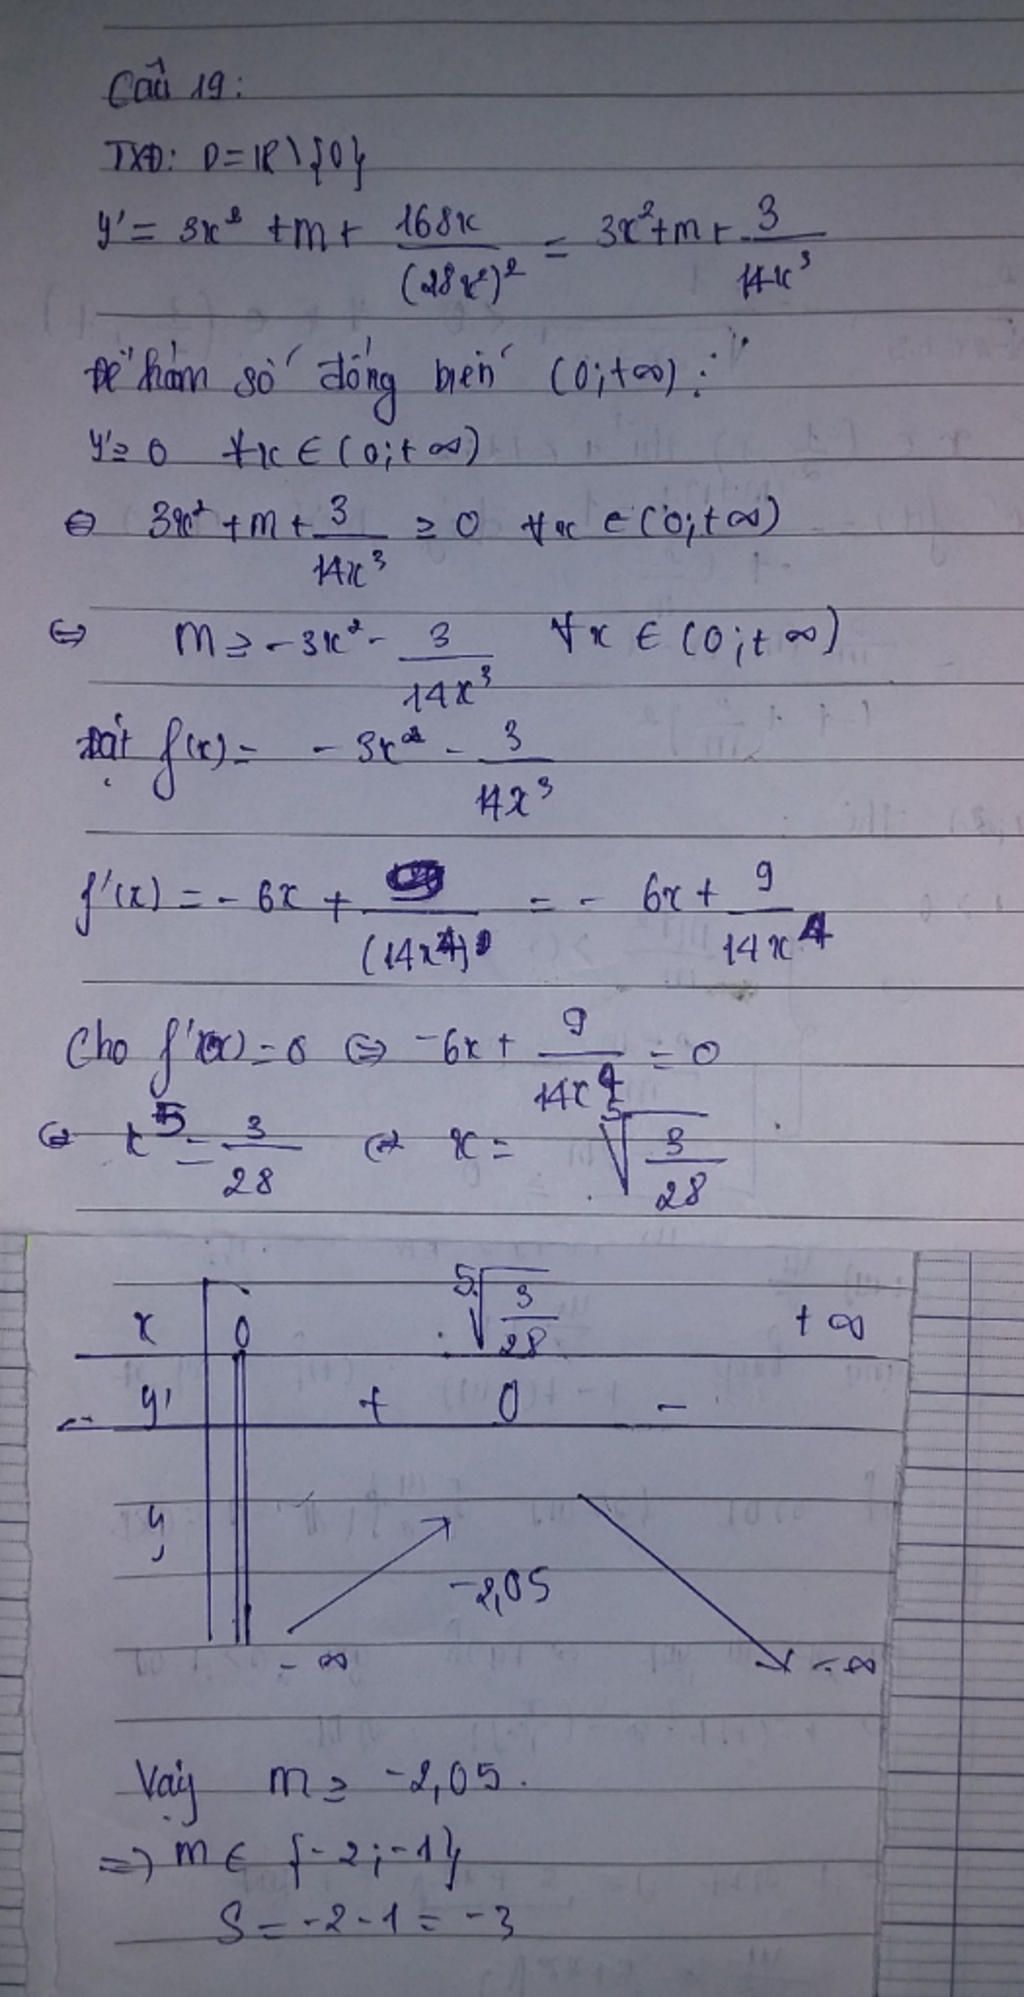 Câu 19:
TXĐ: D=IR\{0}
y' = 3x² + m + 168x/(28x²)² = 3x² + m + 3/14x³
Để hàm số đồng biến (0;+∞):
y' ≥ 0 ∀x ∈ (0;+∞)
⇔ 3x² + m + 3/14x³ ≥ 0 ∀x ∈ (0;+∞)
⇔ m ≥ -3x² - 3/14x³ ∀x ∈ (0;+∞)
Đặt f(x) = -3x² - 3/14x³
f'(x) = -6x + 9/(14x⁴) = -6x + 9/14x⁴
Cho f'(x) = 0 ⇔ -6x + 9/14x⁴ = 0
⇔ x⁵ = 3/28 ⇔ x = ⁵√(3/28)
x 0 ⁵√(3/28) +∞
y' + 0 -
y
-2,05
-∞ -∞
Vậy m ≥ -2,05.
=> m ∈ {-2;-1}
S = -2-1 = -3